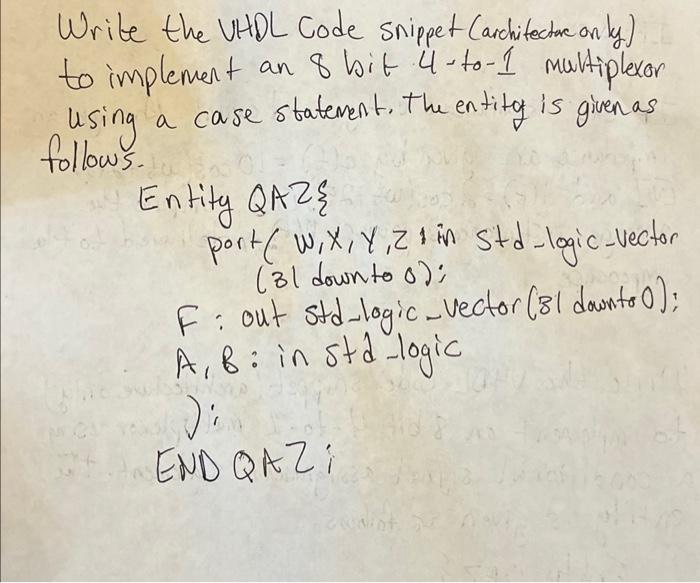 Write the VHDL Code snippet (architecture only)
to implement an 8 bit 4-to-1 multiplexor
using a case statement. The entity is given as
follows.
Entity QAZ{
port( W, X, Y, Z : in std_logic_vector
(31 downto 0);
F : out std_logic_vector (31 downto 0);
A, B : in std_logic
);
END QAZ;